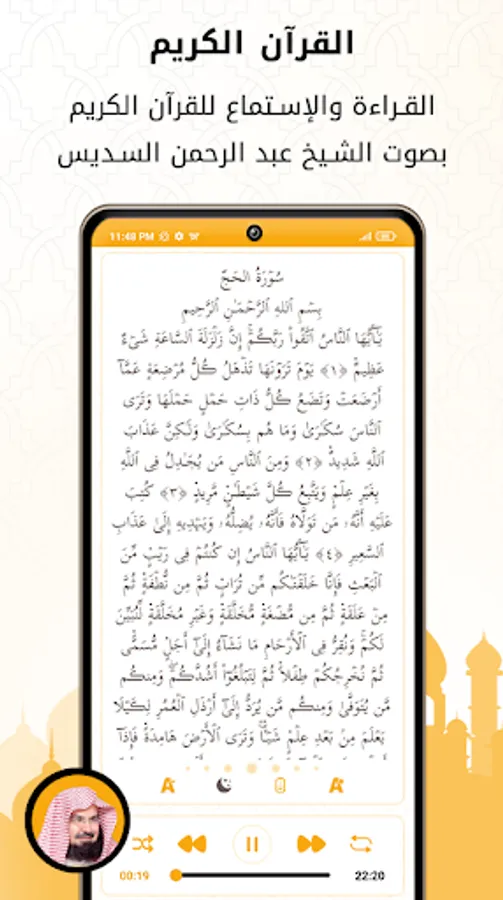 القرآن الكريم
القراءة والإستماع للقرآن الكريم
بصوت الشيخ عبد الرحمن السديس
11:48 PM
سُوۡرَةُ الحَجّ
بِسۡمِ ٱللهِ ٱلرَّحۡمَـٰنِ ٱلرَّحِيمِ
يَـٰٓأَيُّهَا ٱلنَّاسُ ٱتَّقُواْ رَبَّكُمۡ‌ۚ إِنَّ زَلۡزَلَةَ ٱلسَّاعَةِ شَىۡءٌ
عَظِيمٌ ﴿١﴾ يَوۡمَ تَرَوۡنَهَا تَذۡهَلُ كُلُّ مُرۡضِعَةٍ عَمَّآ
أَرۡضَعَتۡ وَتَضَعُ كُلُّ ذَاتِ حَمۡلٍ حَمۡلَهَا وَتَرَى
ٱلنَّاسَ سُكَـٰرَىٰ وَمَا هُم بِسُكَـٰرَىٰ وَلَـٰكِنَّ عَذَابَ
ٱللَّهِ شَدِيدٌ ﴿٢﴾ وَمِنَ ٱلنَّاسِ مَن يُجَـٰدِلُ فِى ٱللَّهِ
بِغَيۡرِ عِلۡمٍ وَيَتَّبِعُ كُلَّ شَيۡطَـٰنٍ مَّرِيدٍ ﴿٣﴾ كُتِبَ
عَلَيۡهِ أَنَّهُۥ مَن تَوَلَّاهُ فَأَنَّهُۥ يُضِلُّهُۥ وَيَہۡدِيهِ إِلَىٰ عَذَابِ
ٱلسَّعِيرِ ﴿٤﴾ يَـٰٓأَيُّهَا ٱلنَّاسُ إِن كُنتُمۡ فِى رَيۡبٍ مِّنَ
ٱلۡبَعۡثِ فَإِنَّا خَلَقۡنَـٰكُم مِّن تُرَابٍ ثُمَّ مِن نُّطۡفَةٍ ثُمَّ
مِنۡ عَلَقَةٍ ثُمَّ مِن مُّضۡغَةٍ مُّخَلَّقَةٍ وَغَيۡرِ مُخَلَّقَةٍ لِّنُبَيِّنَ
لَكُمۡ‌ۚ وَنُقِرُّ فِى ٱلۡأَرۡحَامِ مَا نَشَآءُ إِلَىٰٓ أَجَلٍ مُّسَمًّى
ثُمَّ نُخۡرِجُكُمۡ طِفۡلاً ثُمَّ لِتَبۡلُغُوٓاْ أَشُدَّڪُمۡ‌ۖ وَمِنڪُم
مَّن يُتَوَفَّىٰ وَمِنڪُم مَّن يُرَدُّ إِلَىٰٓ أَرۡذَلِ ٱلۡعُمُرِ لِڪَيۡلَا
يَعۡلَمَ مِنۢ بَعۡدِ عِلۡمٍ شَيۡـًٔا‌ۚ وَتَرَى ٱلۡأَرۡضَ هَامِدَةً فَإِذَآ
A- A+
00:19 22:20